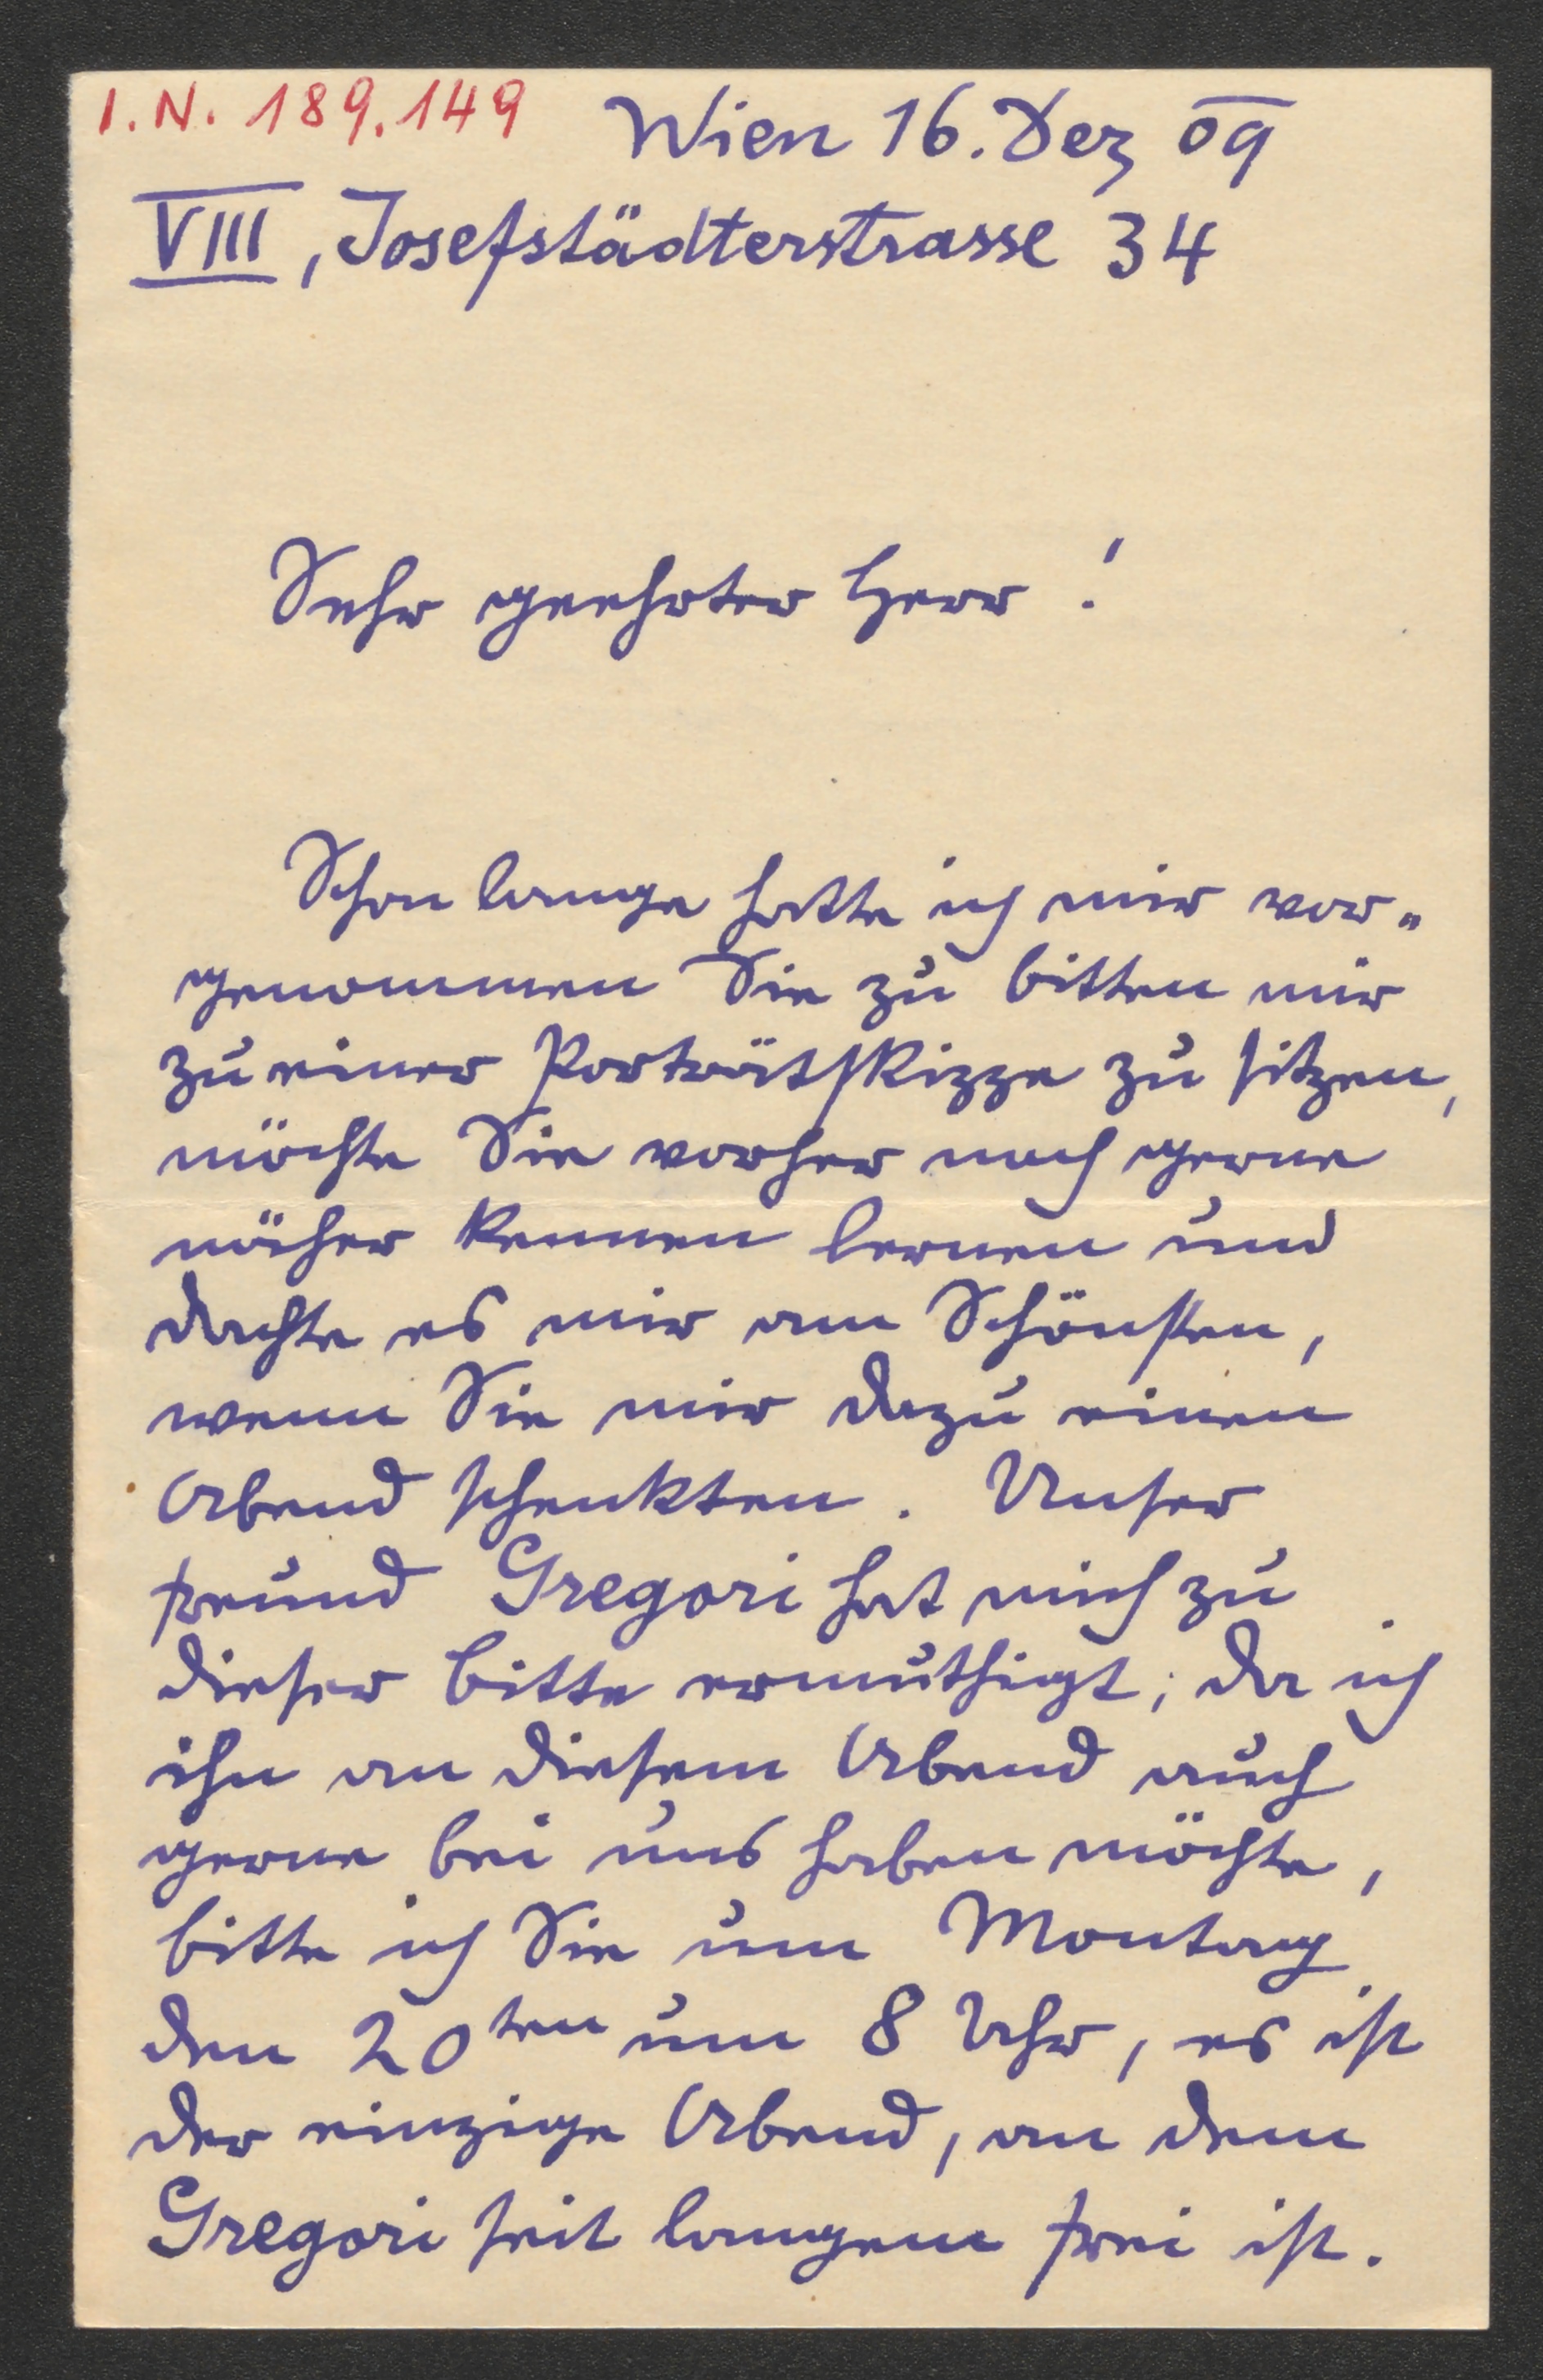 I.N. 189.149
Wien 16. Dez 09
VIII, Josefstädterstrasse 34
Sehr geehrter Herr!
Schon lange hatte ich mir vor„
genommen Sie zu bitten mir
zu einer Porträtskizze zu sitzen,
möchte Sie vorher noch gerne
näher kennen lernen und
dachte es mir am Schönsten,
wenn Sie mir dazu einen
Abend schenkten. Unser
Freund Gregori hat mich zu
dieser Bitte ermuthigt; da ich
ihn an diesem Abend auch
gerne bei uns haben möchte,
bitte ich Sie um Montag
den 20ten um 8 Uhr, es ist
der einzige Abend, an dem
Gregori seit langem frei ist.